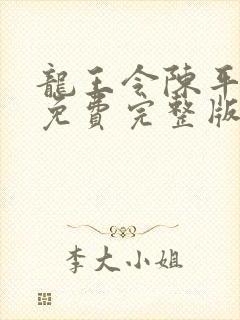 龍王令陳平
免費完整版
李大小姐